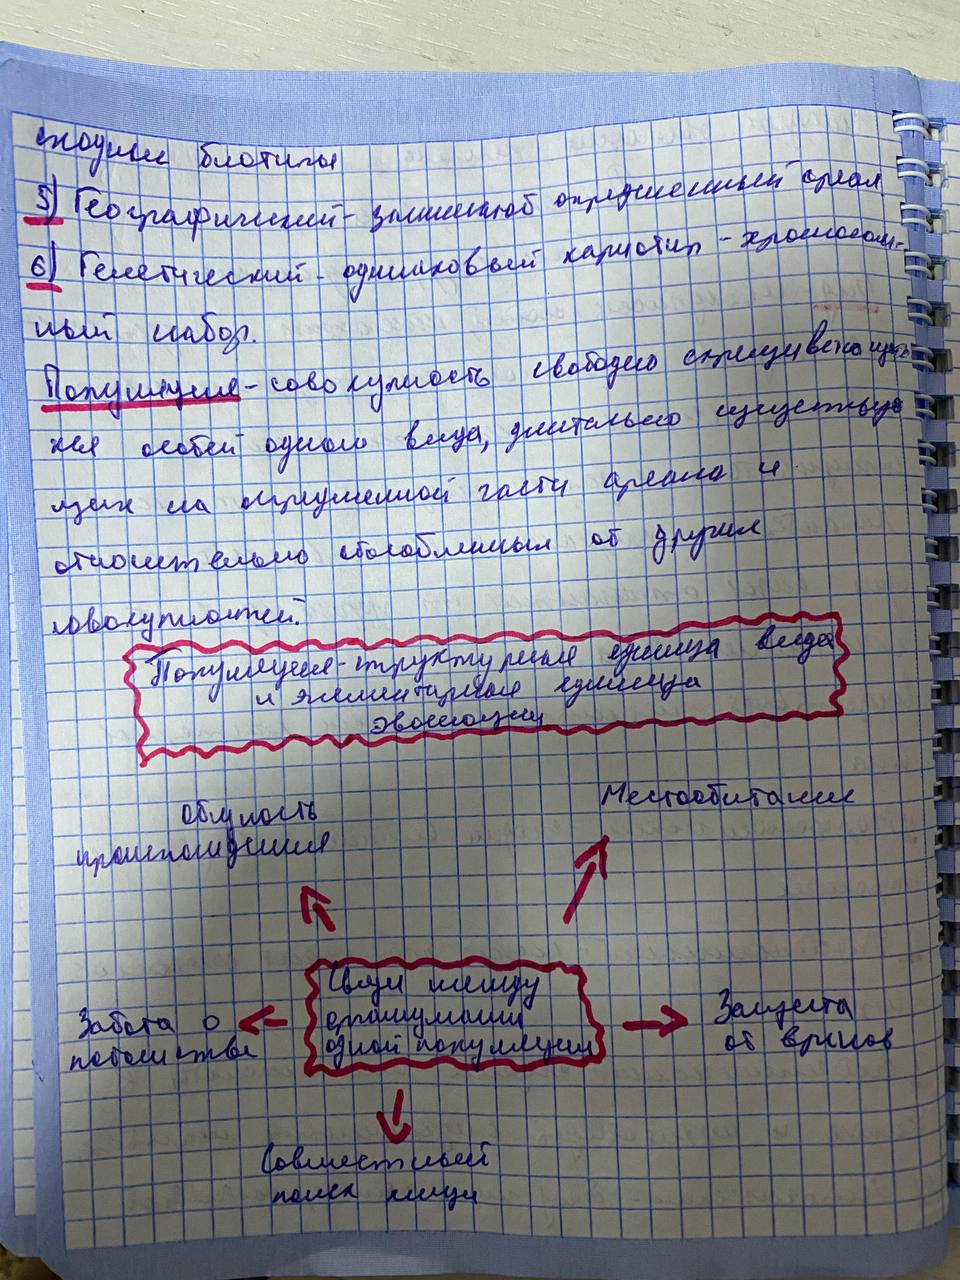 сходные биотипы
5) Географический - занимают определенный ареал
6) Генетический - одинаковый кариотип - хромосом-
ный набор.
Популяция - совокупность свободно скрещивающих
хся особей одного вида, длительно существую
щих на определенной части ареала и
относительно обособленных от других
совокупностей.
Популяция - структурная единица вида
и элементарная единица
эволюции
Общность
происхождения
Местообитание
Связи между
организмами
одной популяции
Забота о
потомстве
Защита
от врагов
Совместный
поиск пищи